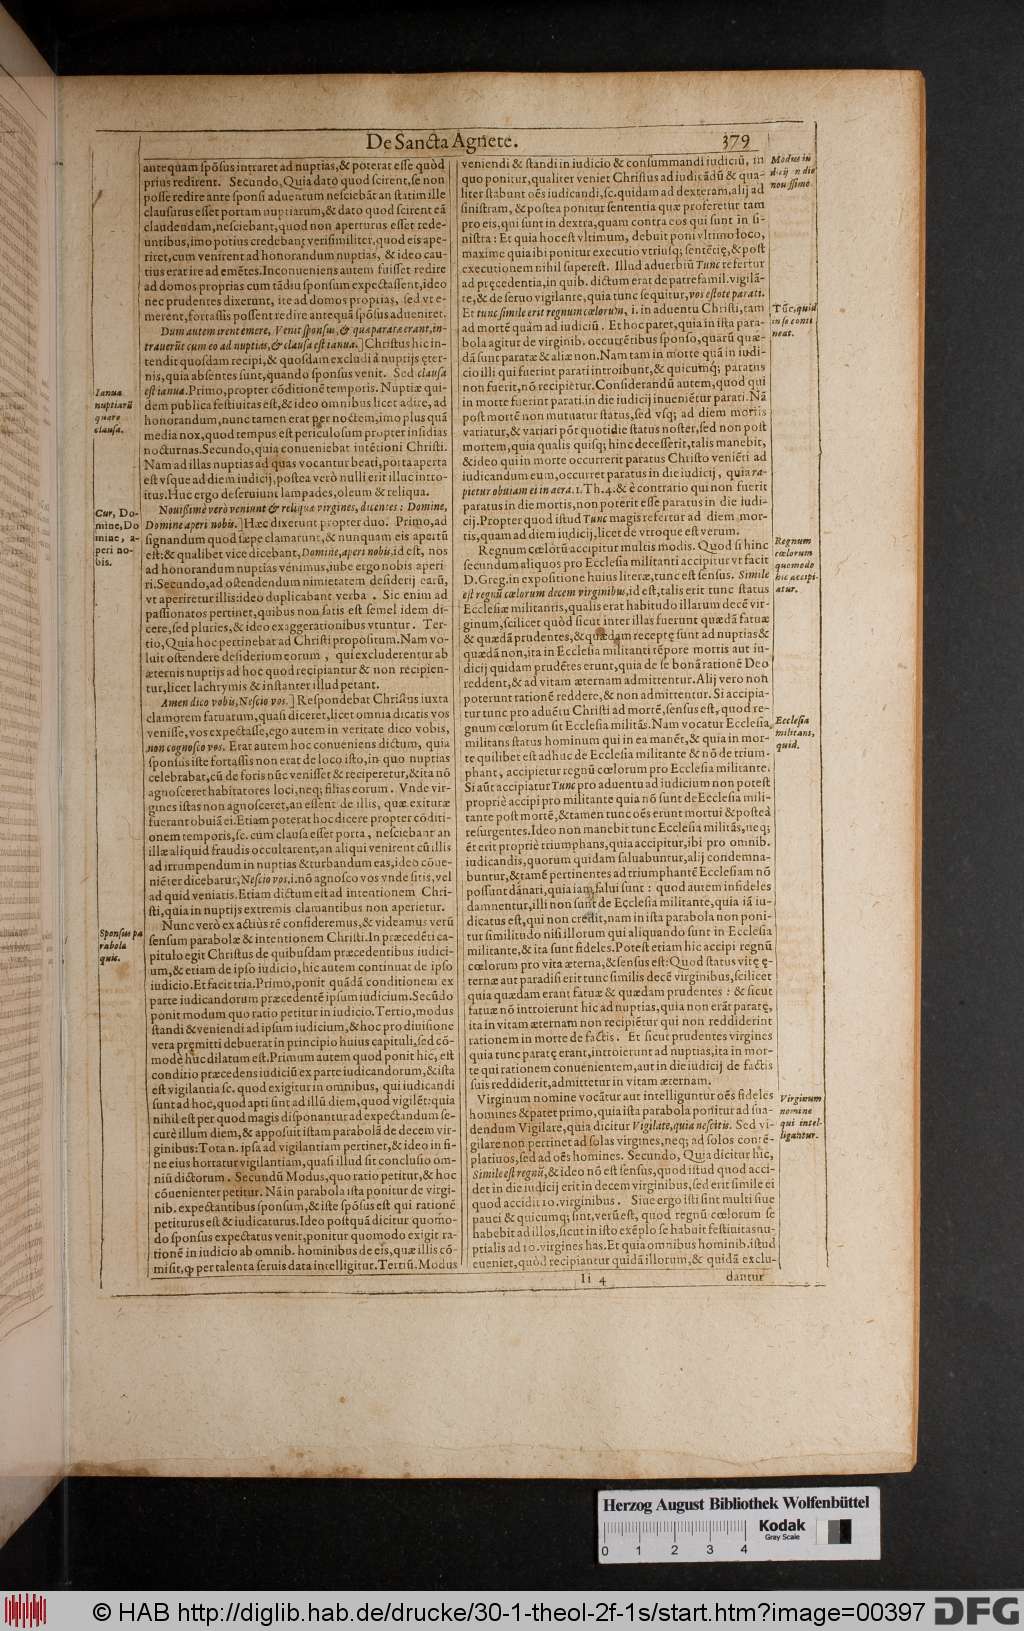 De Sancta Agnete. 379
antequam spōsus intraret ad nuptias,& poterat esse quòd
prius redirent. Secundo, Quia dato quod scirent, se non
posse redire ante sponsi aduentum nesciebāt an statim ille
clausurus esset portam nuptiarum,& dato quod scirent eā
claudendam, nesciebant, quod non aperturus esset rede-
untibus, imo potius credebant verisimiliter, quod eis ape-
riret, cum venirent ad honorandum nuptias, & ideo cau-
tius erat ire ad emētes. Inconueniens autem fuisset redire
ad domos proprias cum tādiu sponsum expectassent, ideo
nec prudentes dixerunt, ite ad domos proprias, sed vt e-
merent, fortassis possent redire antequā spōsus adueniret.
Dum autem irent emere, Venit sponsus, & quæ paratæ erant, in-
trauerūt cum eo ad nuptias, & clausa est ianua.] Christus hic in-
tendit quosdam recipi, & quosdam excludi à nuptijs æter-
nis, quia absentes sunt, quando sponsus venit. Sed clausa
est ianua. Primo, propter cōditionē temporis. Nuptiæ qui-
dem publica festiuitas est, & ideo omnibus licet adire, ad
honorandum, nunc tamen erat per noctem, imo plus quā
media nox, quod tempus est periculosum propter insidias
nocturnas. Secundo, quia conueniebat intētioni Christi.
Nam ad illas nuptias ad quas vocantur beati, porta aperta
est vsque ad diem iudicij, postea verò nulli erit illuc intro-
itus. Huc ergo deseruiunt lampades, oleum & reliqua.
Nouissimè verò veniunt & reliquæ virgines, dicentes: Domine,
Domine aperi nobis.] Hæc dixerunt propter duo. Primo, ad
signandum quod sæpe clamarunt, & nunquam eis apertū
est: & qualibet vice dicebant, Domine, aperi nobis. id est, nos
ad honorandum nuptias venimus, iube ergo nobis aperi
ri. Secundo, ad ostendendum nimietatem desiderij earū,
vt aperiretur illis: ideo duplicabant verba. Sic enim ad
passionatos pertinet, quibus non satis est semel idem di-
cere, sed pluries, & ideo exaggerationibus vtuntur. Ter-
tio, Quia hoc pertinebat ad Christi propositum. Nam vo-
luit ostendere desiderium eorum, qui excluderentur ab
æternis nuptijs ad hoc quod recipiantur & non recipien-
tur, licet lachrymis & instanter illud petant.
Amen dico vobis, Nescio vos.] Respondebat Christus iuxta
clamorem fatuarum, quasi diceret, licet omnia dicatis vos
venisse, vos expectasse, ego autem in veritate dico vobis,
non cognosco vos. Erat autem hoc conueniens dictum, quia
sponsus iste fortassis non erat de loco isto, in quo nuptias
celebrabat, cū de foris nūc venisset & reciperetur, & ita nō
agnosceret habitatores loci, neq; filias eorum. Vnde vir-
gines istas non agnosceret, an essent de illis, quæ exituræ
fuerant obuiā ei. Etiam poterat hoc dicere propter conditi-
onem temporis, sc. cùm clausa esset porta, nesciebant an
illæ aliquid fraudis occultarent, an aliqui venirent cū illis
ad irrumpendum in nuptias & turbandum eas, ideo cōue-
niēter dicebatur, Nescio vos, i. nō agnosco vos vnde sitis, vel
ad quid veniatis. Etiam dictum est ad intentionem Chri-
sti, quia in nuptijs extremis clamantibus non aperietur.
Nunc verò exactiùs rē consideremus, & videamus verū
sensum parabolæ & intentionem Christi. In præcedēti ca-
pitulo egit Christus de quibusdam præcedentibus iudici-
um, & etiam de ipso iudicio, hic autem continuat de ipso
iudicio. Et facit tria. Primo, ponit quādā conditionem ex
parte iudicandorum præcedentē ipsum iudicium. Secūdo
ponit modum quo ratio petitur in iudicio. Tertio, modus
standi & veniendi ad ipsum iudicium, & hoc pro diuisione
vera pręmitti debuerat in principio huius capituli, sed cō-
modè huc dilatum est. Primum autem quod ponit hic, est
conditio præcedens iudiciū ex parte iudicandorum, & ista
est vigilantia sc. quod exigitur in omnibus, qui iudicandi
sunt ad hoc, quod apti sint ad illū diem, quod vigilēt: quia
nihil est per quod magis disponantur ad expectandum se-
curè illum diem, & apposuit istam parabolā de decem vir-
ginibus: Tota n. ipsa ad vigilantiam pertinet, & ideo in fi-
ne eius hortatur vigilantiam, quasi illud sit conclusio om-
niū dictorum. Secundū Modus, quo ratio petitur, & hoc
cōuenienter petitur. Nā in parabola ista ponitur de virgi-
nib. expectantibus sponsum, & iste spōsus est qui rationē
petiturus est & iudicaturus. Ideo postquā dicitur quomo-
do sponsus expectatus venit, ponitur quomodo exigit ra-
tionē in iudicio ab omnib. hominibus de eis, quæ illis cō-
misit, qp per talenta seruis data intelligitur. Tertiū. Modus
Ianua
nuptiarū
quare
clausa.
Cur, Do-
mine, Do
mine, a-
peri no-
bis.
Sponsus pa
rabola
quis.
veniendi & standi in iudicio & consummandi iudiciū, in
quo ponitur, qualiter veniet Christus ad iudicādū & qua-
liter stabunt oēs iudicandi, sc. quidam ad dexteram, alij ad
sinistram, & postea ponitur sententia quæ proferetur tam
pro eis, qui sunt in dextra, quam contra eos qui sunt in si-
nistra: Et quia hoc est vltimum, debuit poni vltimo loco,
maxime quia ibi ponitur executio vtriusq; sentētię, & post
executionem nihil superest. Illud aduerbiū Tunc refertur
ad pręcedentia, in quib. dictum erat de patrefamil. vigilā-
te, & de seruo vigilante, quia tunc sequitur, vos estote parati.
Et tunc simile erit regnum cœlorum, i. in aduentu Christi, tam
ad mortē quàm ad iudiciū. Et hoc patet, quia in ista para-
bola agitur de virginib. occurrētibus sponso, quarū quæ-
dā sunt paratæ & aliæ non. Nam tam in morte quā in iudi-
cio illi qui fuerint parati introibunt, & quicumq; paratus
non fuerit, nō recipietur. Considerandū autem, quod qui
in morte fuerint parati. in die iudicij inueniētur parati. Nā
post mortē non mutuatur status, sed vsq; ad diem mortis
variatur, & variari pōt quotidie status noster, sed non post
mortem, quia qualis quisq; hinc decesserit, talis manebit,
& ideo qui in morte occurrerit paratus Christo veniēti ad
iudicandum eum, occurret paratus in die iudicij, quia ra-
pietur obuiam ei in aera. 1. Th. 4. & è contrario qui non fuerit
paratus in die mortis, non poterit esse paratus in die iudi-
cij. Propter quod istud Tunc magis refertur ad diem mor-
tis, quam ad diem iudicij, licet de vtroque est verum.
Regnum cœlorū accipitur multis modis. Quod si hinc
secundum aliquos pro Ecclesia militanti accipitur vt facit
D. Greg. in expositione huius literæ, tunc est sensus. Simile
est regnū cœlorum decem virginibus, id est, talis erit tunc status
Ecclesiæ militantis, qualis erat habitudo illarum decē vir-
ginum, scilicet quòd sicut inter illas fuerunt quædā fatuæ
& quædā prudentes, & quædam receptę sunt ad nuptias &
quædā non, ita in Ecclesia militanti tēpore mortis aut iu-
dicij quidam prudētes erunt, quia de se bonā rationē Deo
reddent, & ad vitam æternam admittentur. Alij vero non
poterunt rationē reddere, & non admittentur. Si accipia-
tur tunc pro aduētu Christi ad mortē, sensus est, quod re-
gnum cœlorum sit Ecclesia militās. Nam vocatur Ecclesia
militans status hominum qui in ea manēt, & quia in mor-
te quilibet est adhuc de Ecclesia militante & nō de trium-
phant, accipietur regnū cœlorum pro Ecclesia militante.
Si aūt accipiatur Tunc pro aduentu ad iudicium non potest
propriè accipi pro militante quia nō sunt de Ecclesia mili-
tante post mortē, & tamen tunc oēs erunt mortui & posteà
resurgentes. Ideo non manebit tunc Ecclesia militās, neq;
ēt erit propriè triumphans, quia accipitur, ibi pro omnib.
iudicandis, quorum quidam saluabuntur, alij condemna-
buntur, & tamē pertinentes ad triumphantē Ecclesiam nō
possunt dānari, quia iam salui sunt: quod autem infideles
damnentur, illi non sunt de Ecclesia militante, quia iā iu-
dicatus est, qui non credit, nam in ista parabola non poni-
tur similitudo nisi illorum qui aliquando sunt in Ecclesia
militante, & ita sunt fideles. Potest etiam hic accipi regnū
cœlorum pro vita æterna, & sensus est: Quod status vitę ę-
ternæ aut paradisi erit tunc similis decē virginibus, scilicet
quia quædam erant fatuæ & quædam prudentes: & sicut
fatuæ nō introierunt hic ad nuptias, quia non erāt paratę,
ita in vitam æternam non recipiētur qui non reddiderint
rationem in morte de factis. Et sicut prudentes virgines
quia tunc paratę erant, introierunt ad nuptias, ita in mor-
te qui rationem conuenientem, aut in die iudicij de factis
suis reddiderit, admittetur in vitam æternam.
Virginum nomine vocātur aut intelliguntur oēs fideles
homines & patet primo, quia ista parabola ponitur ad sua-
dendum Vigilare, quia dicitur Vigilate, quia nescitis. Sed vi-
gilare non pertinet ad solas virgines, neq; ad solos contē-
platiuos, sed ad oēs homines. Secundo, Quia dicitur hic,
Simile est regnū, & ideo nō est sensus, quod istud quod acci-
det in die iudicij erit in decem virginibus, sed erit simile ei
quod accidit 10. virginibus. Siue ergo isti sint multi siue
pauci & quicumq; sint, verū est, quod regnū cœlorum se
habebit ad illos, sicut in isto exēplo se habuit festiuitas nu-
ptialis ad 10. virgines has. Et quia omnibus hominib. istud
eueniet, quòd recipiantur quidā illorum, & quidā exclu-
Modus iu
dicij in die
nouissimo
Tūc, quid
in se conti
neat.
Regnum
cœlorum
quomodo
hic accipi-
atur.
Ecclesia
militans,
quid.
Virginum
nomine
qui intel-
ligantur.
Ii 4 dantur
Herzog August Bibliothek Wolfenbüttel
0 1 2 3 4
Kodak
Gray Scale
© HAB http://diglib.hab.de/drucke/30-1-theol-2f-1s/start.htm?image=00397
DFG